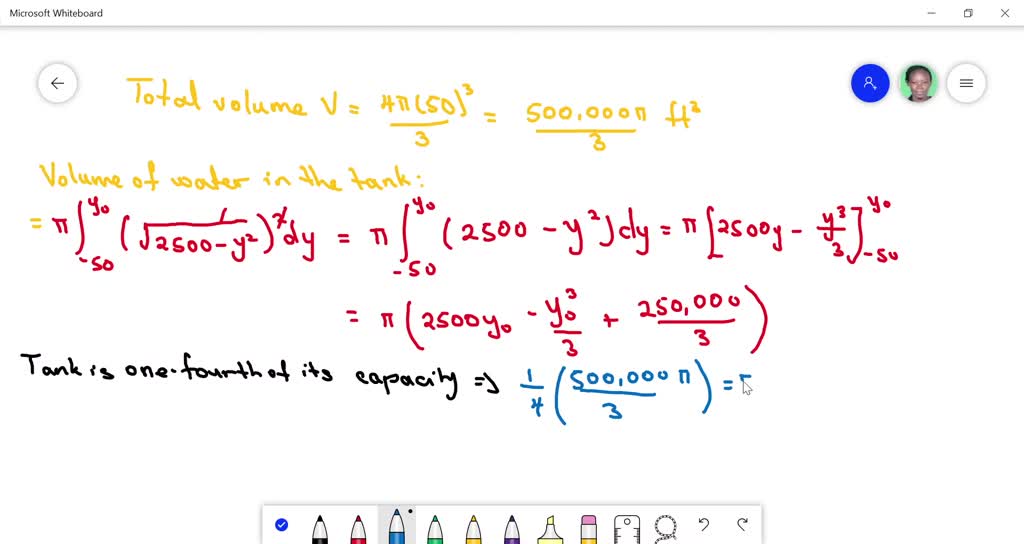 Microsoft Whiteboard
Total volume V = 4π(50)³/3 = 500,000π/3 ft³
Volume of water in the tank:
= π∫₋₅₀^y₀ (√(2500-y²))² dy = π∫₋₅₀^y₀ (2500 - y²)dy = π[2500y - y³/3]₋₅₀^y₀
= π(2500y₀ - y₀³/3 + 250,000/3)
Tank is one-fourth of its capacity => 1/4 (500,000π/3) =